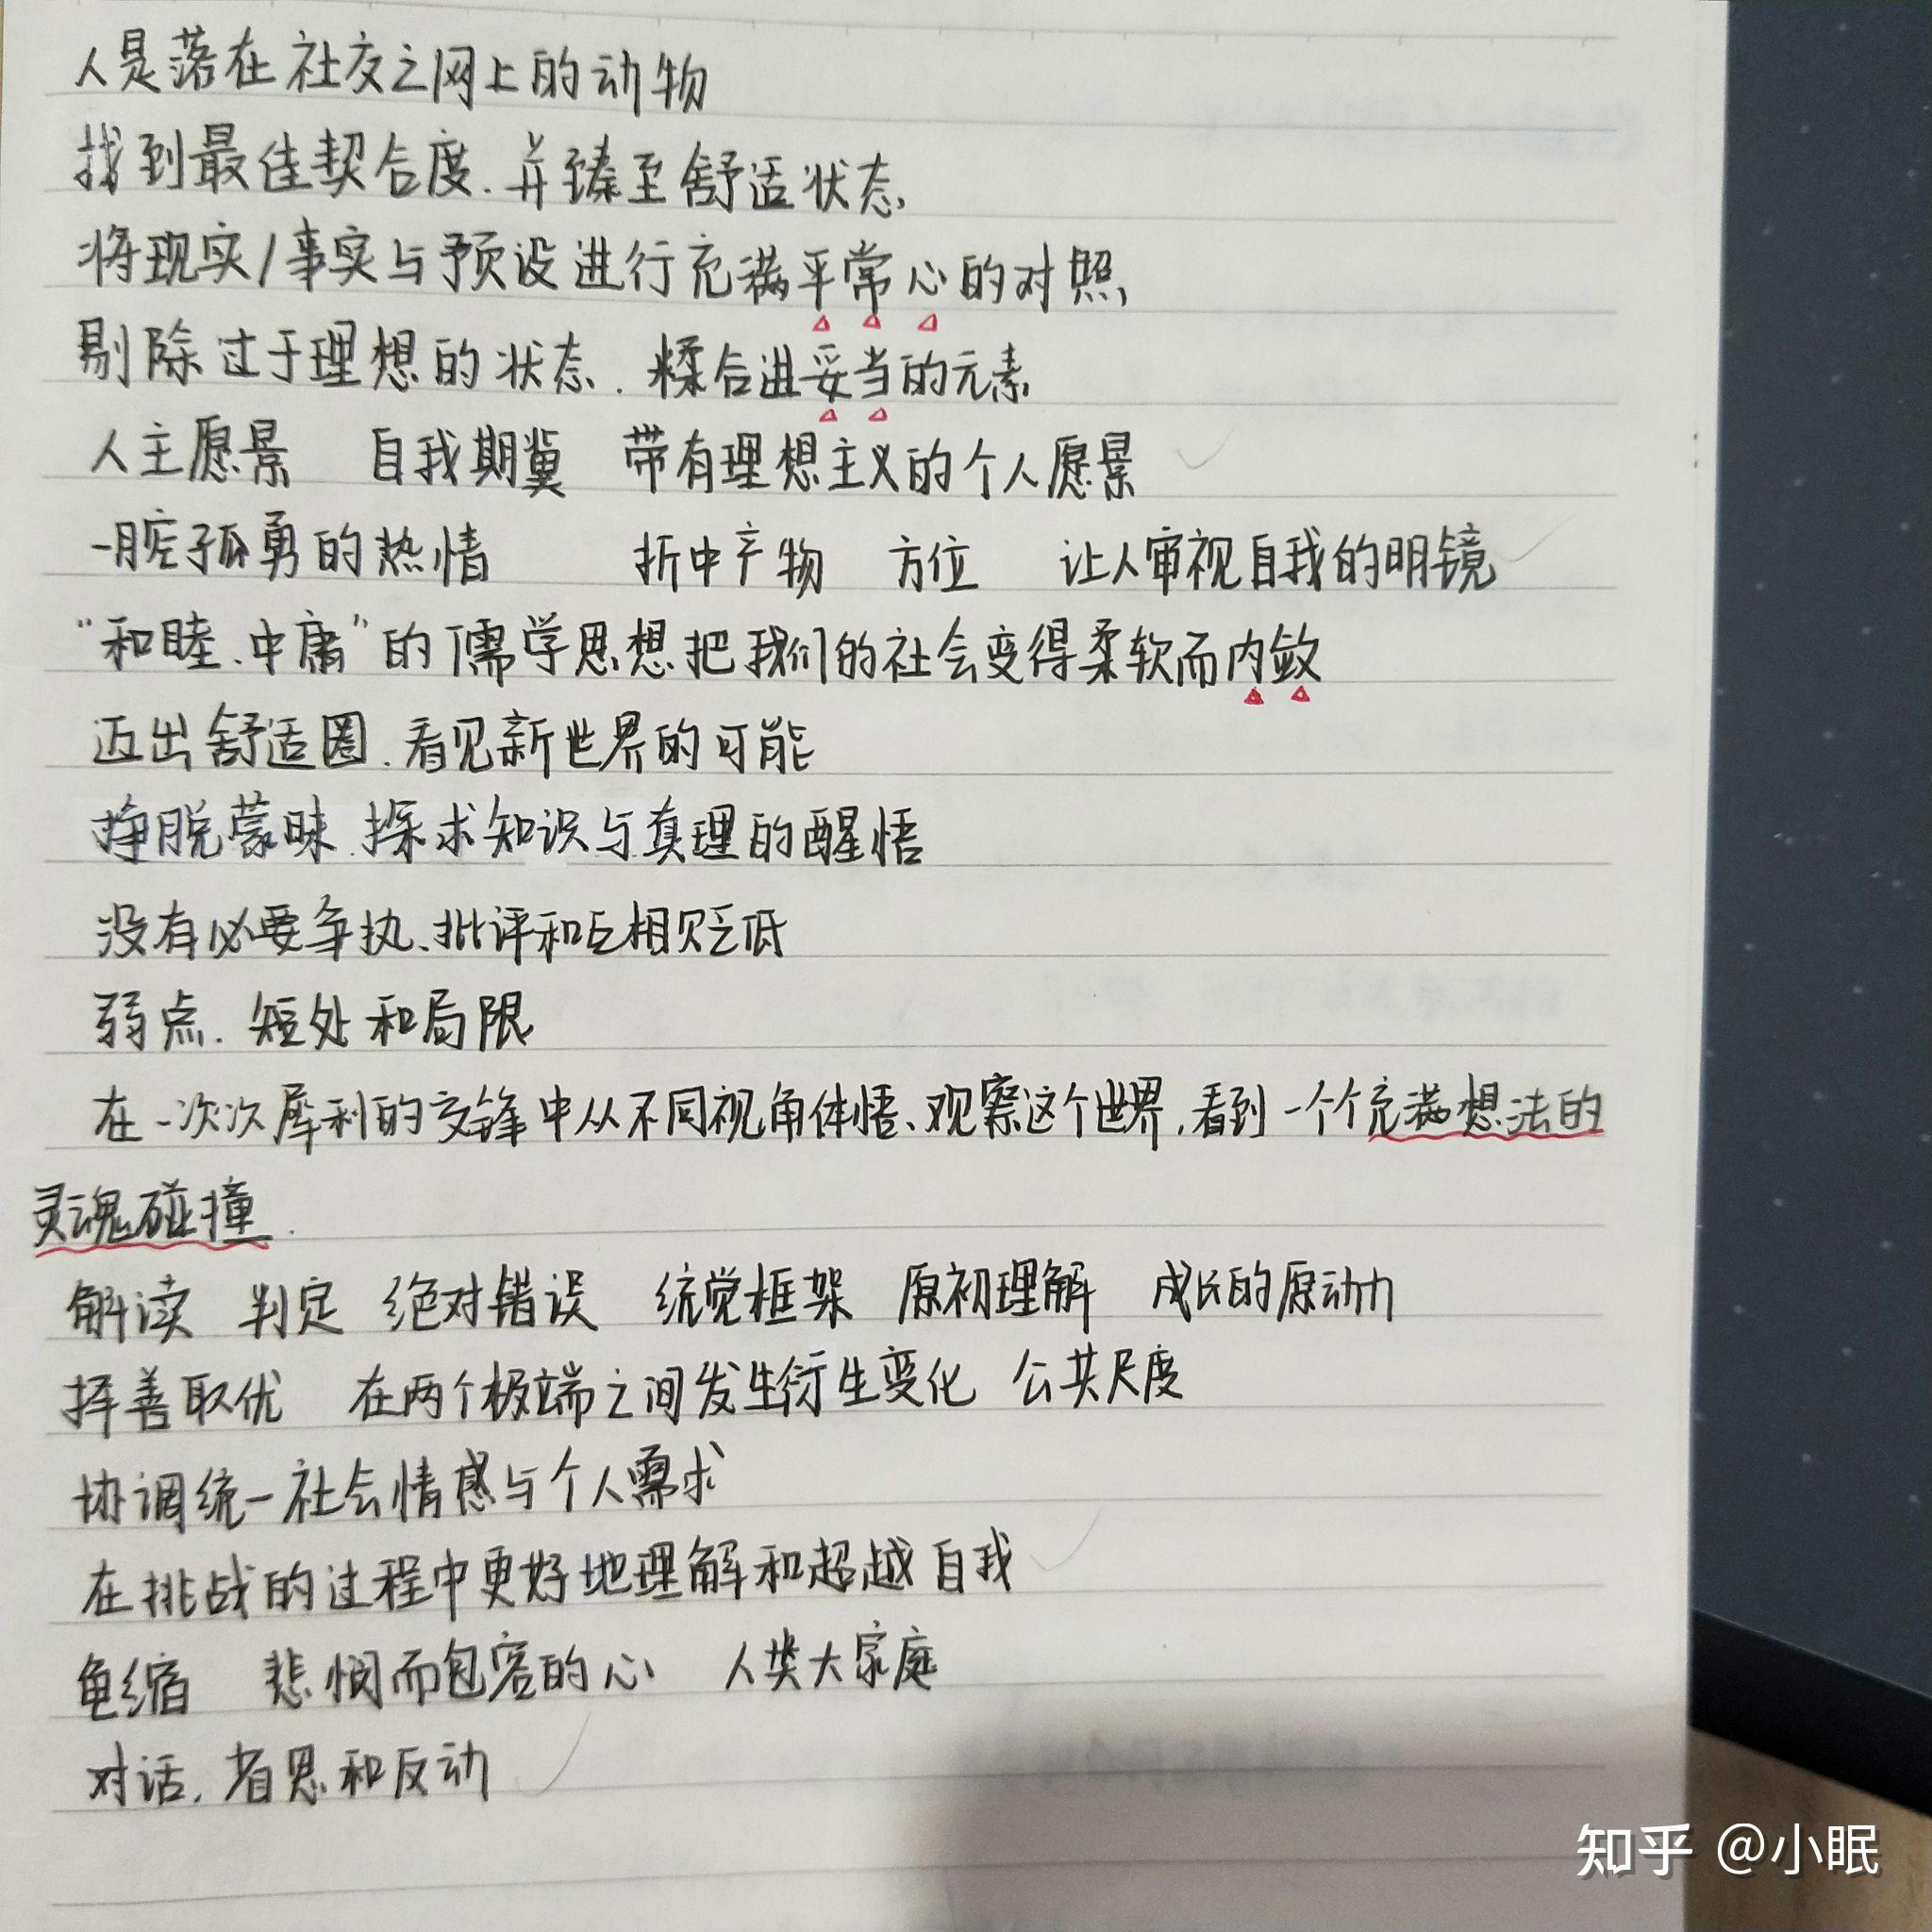 人是落在社交之网上的动物
找到最佳契合度、并臻至舒适状态
将现实/事实与预设进行充满平常心的对照
剔除过于理想的状态、糅合进妥当的元素
人主愿景 自我期冀 带有理想主义的个人愿景
一腔孤勇的热情 折中产物 方位 让人审视自我的明镜
“和睦、中庸”的儒学思想把我们的社会变得柔软而内敛
迈出舒适圈、看见新世界的可能
挣脱蒙昧、探求知识与真理的醒悟
没有必要争执、批评和互相贬低
弱点、短处和局限
在一次次犀利的交锋中从不同视角体悟、观察这个世界,看到一个个充满想法的
灵魂碰撞.
解读 判定 绝对错误 统觉框架 原初理解 成长的原动力
择善取优 在两个极端之间发生衍生变化 公共尺度
协调统一社会情感与个人需求
在挑战的过程中更好地理解和超越自我
龟缩 悲悯而包容的心 人类大家庭
对话、省思和反动
知乎 @小眠